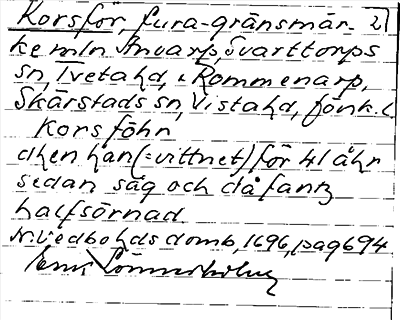 Korsför, fura-gränsmär- 2)
ke mln Anvarp, Svarttorps
sn, Tveta hd, i Rommenarp,
Skärstads sn, Vista hd, Jönk. l
Korsföhn
dhen han (=vittnet) för 41 åhr
sedan såg och då fantz
halfsörnad.
N. Vedbo hds domb, 1696, pag 694